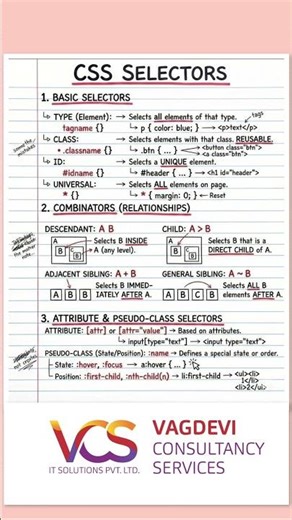 CSS SELECTORS
1. BASIC SELECTORS
→ TYPE (Element): → Selects all elements of that type.
tags
tagname {} ↳ p { color: blue; } → <p>text</p>
→ CLASS: → Selects elements with that class. REUSABLE.
.classname {} ↳ .btn { ... } → <button class="btn">
<a class="btn">
→ ID: → Selects a UNIQUE element.
#idname {} ↳ #header { ... } → <h1 id="header">
→ UNIVERSAL: → Selects ALL elements on page.
* {} ↳ * { margin: 0; } ← Reset
2. COMBINATORS (RELATIONSHIPS)
DESCENDANT: A B CHILD: A > B
A B Selects B INSIDE A (any level).
A B Selects B that is a DIRECT CHILD of A.
ADJACENT SIBLING: A + B GENERAL SIBLING: A ~ B
A B B Selects B IMMED-
IATELY AFTER A.
A B C B Selects ALL B
elements AFTER A.
3. ATTRIBUTE & PSEUDO-CLASS SELECTORS
ATTRIBUTE: [attr] or [attr="value"] → Based on attributes.
↳ input[type="text"] → <input type="text">
PSEUDO-CLASS (State/Position): :name → Defines a special state or order.
State: :hover, :focus → a:hover { ... }
Position: :first-child, :nth-child(n) → li:first-child → <ul><li>
1</li>
<li>2</ul>
VCS
IT SOLUTIONS PVT. LTD.
VAGDEVI
CONSULTANCY
SERVICES